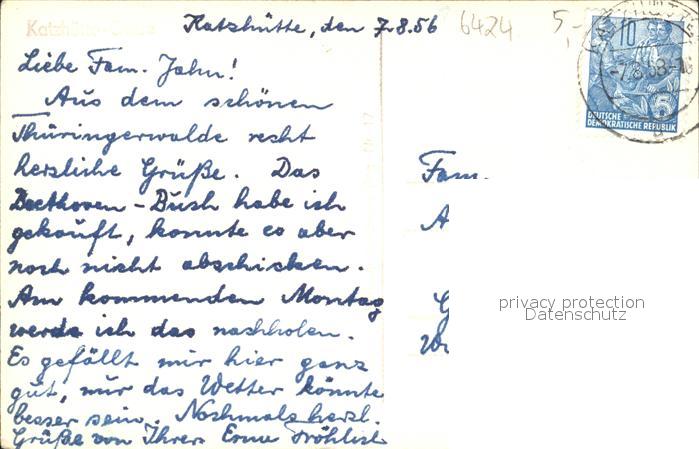 Katzhütte, den 7.8.56
6424
5,-
Liebe Fam. Jahn!
Aus dem schönen
Thüringerwalde recht
herzliche Grüße. Das
Beethoven-Buch habe ich
gekauft, konnte es aber
noch nicht abschicken.
Am kommenden Montag
werde ich das nachholen.
Es gefällt mir hier ganz
gut, nur das Wetter könnte
besser sein. Nochmals herzl.
Grüße von Ihrer Erna Fröhlich
10
5
DEUTSCHE
DEMOKRATISCHE REPUBLIK
Fam.
A
G
privacy protection
Datenschutz